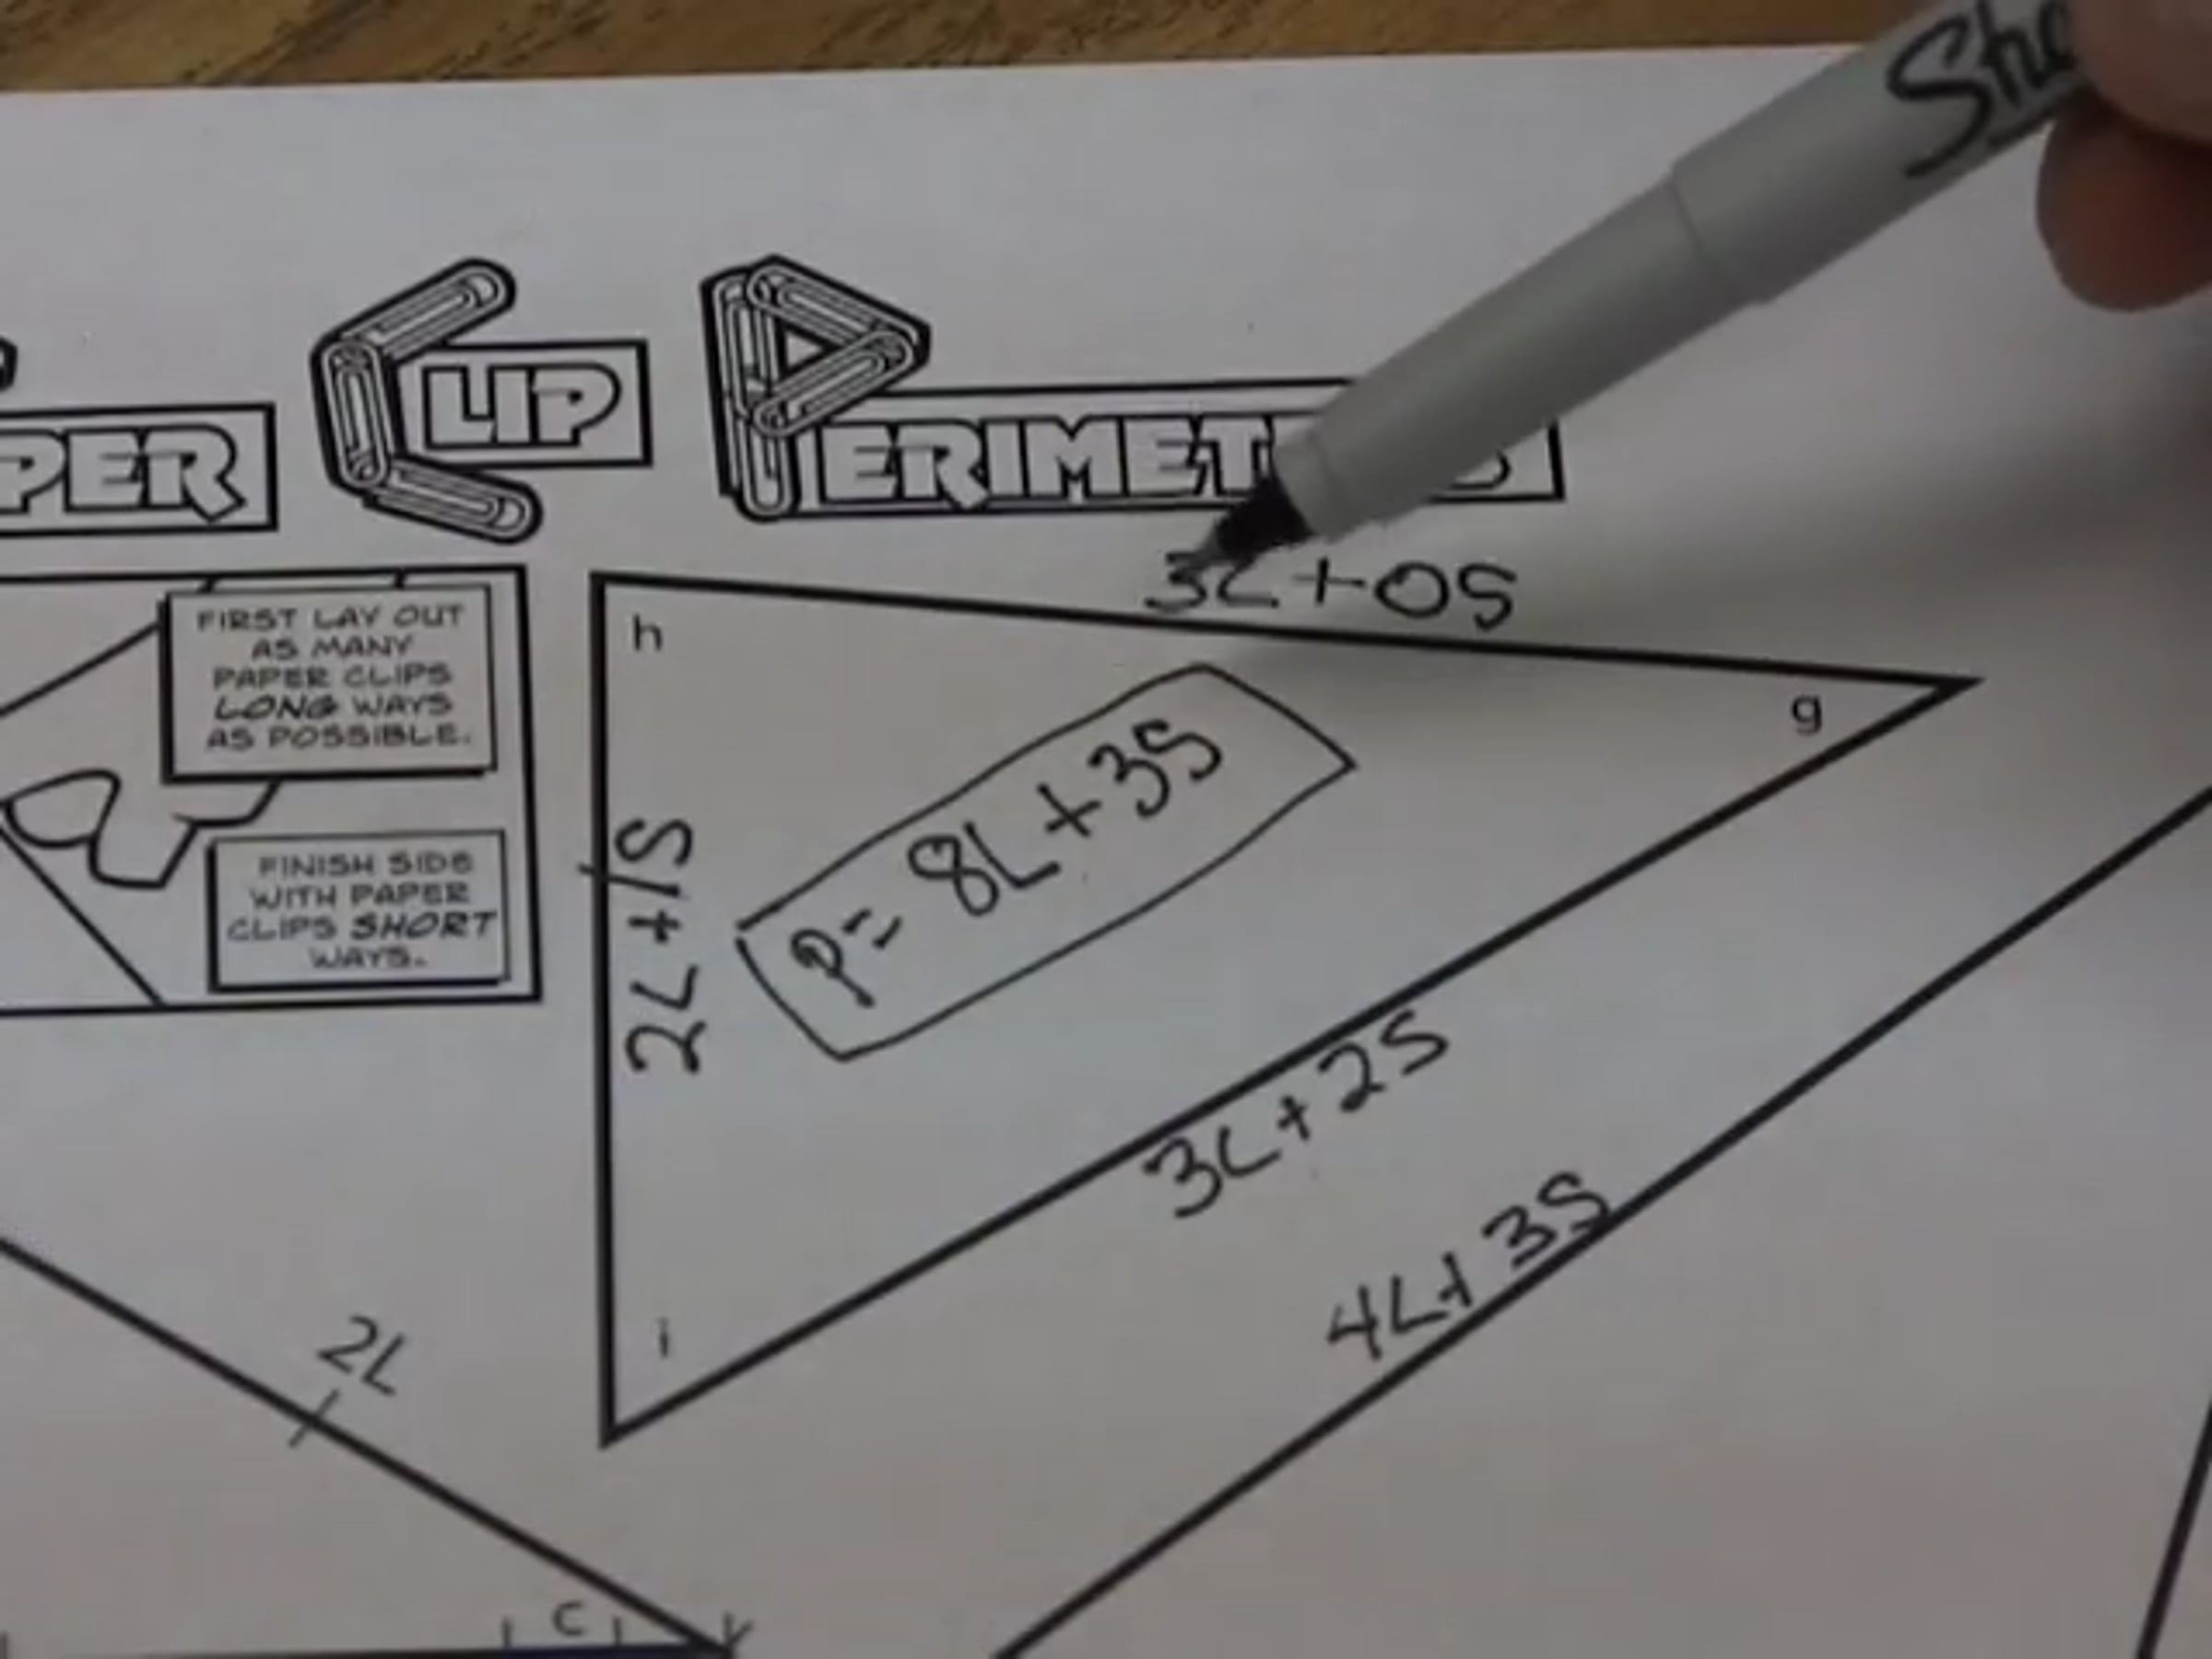 Sha
PER CLIP PERIMET S
3L+0S
FIRST LAY OUT
AS MANY
PAPER CLIPS
LONG WAYS
AS POSSIBLE.
h
g
P= 8L+3S
2L+1S
FINISH SIDE
WITH PAPER
CLIPS SHORT
WAYS.
3L+2S
4L+3S
i
2L
C